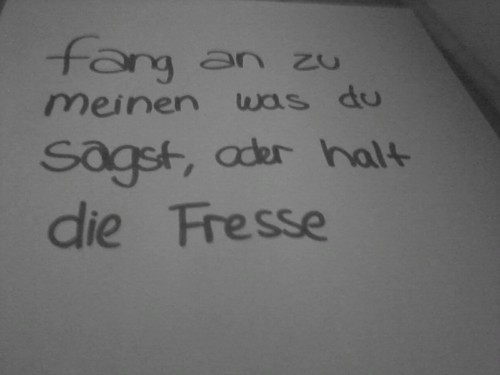 fang an zu
meinen was du
sagst, oder halt
die Fresse